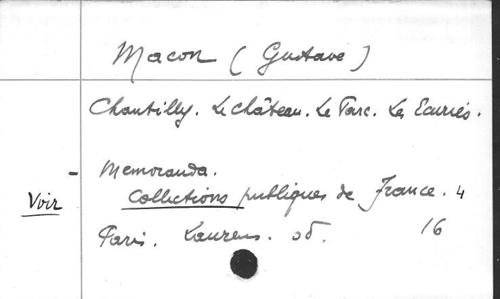 Macon (Gustave)
Chantilly. Le Château. Le Parc. Les Ecuries.
- Memoranda.
Voir Collections publiques de France. 4
Paris. Laurens. sd. 16